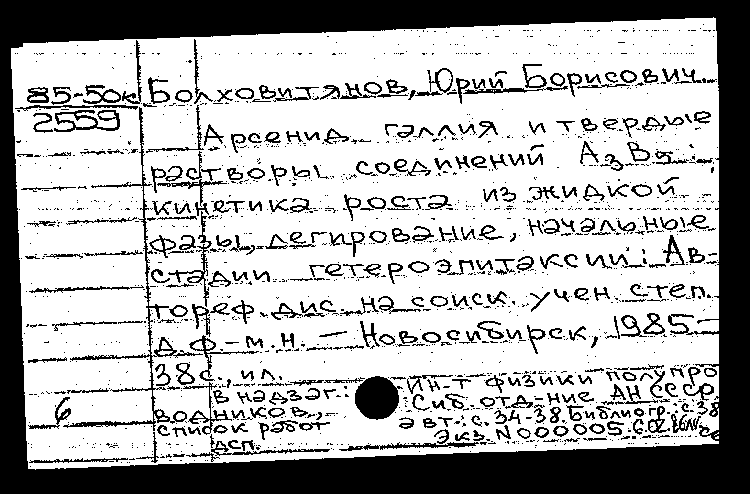 85-50к Болховитянов, Юрий Борисович.
2559
Арсенид галлия и твердые
растворы соединений А3В5:
кинетика роста из жидкой
фазы, легирование, начальные
стадии гетероэпитаксии: Ав-
тореф. дис. на соиск. учен. степ.
д. ф.-м. н. — Новосибирск, 1985.—
38 с., ил.
6
В надзаг.: Ин-т физики полупро
водников, Сиб. отд-ние АН СССР.
Список работ авт.: с. 34-38. Библиогр.: с. 38
дсп. Экз. N000005.